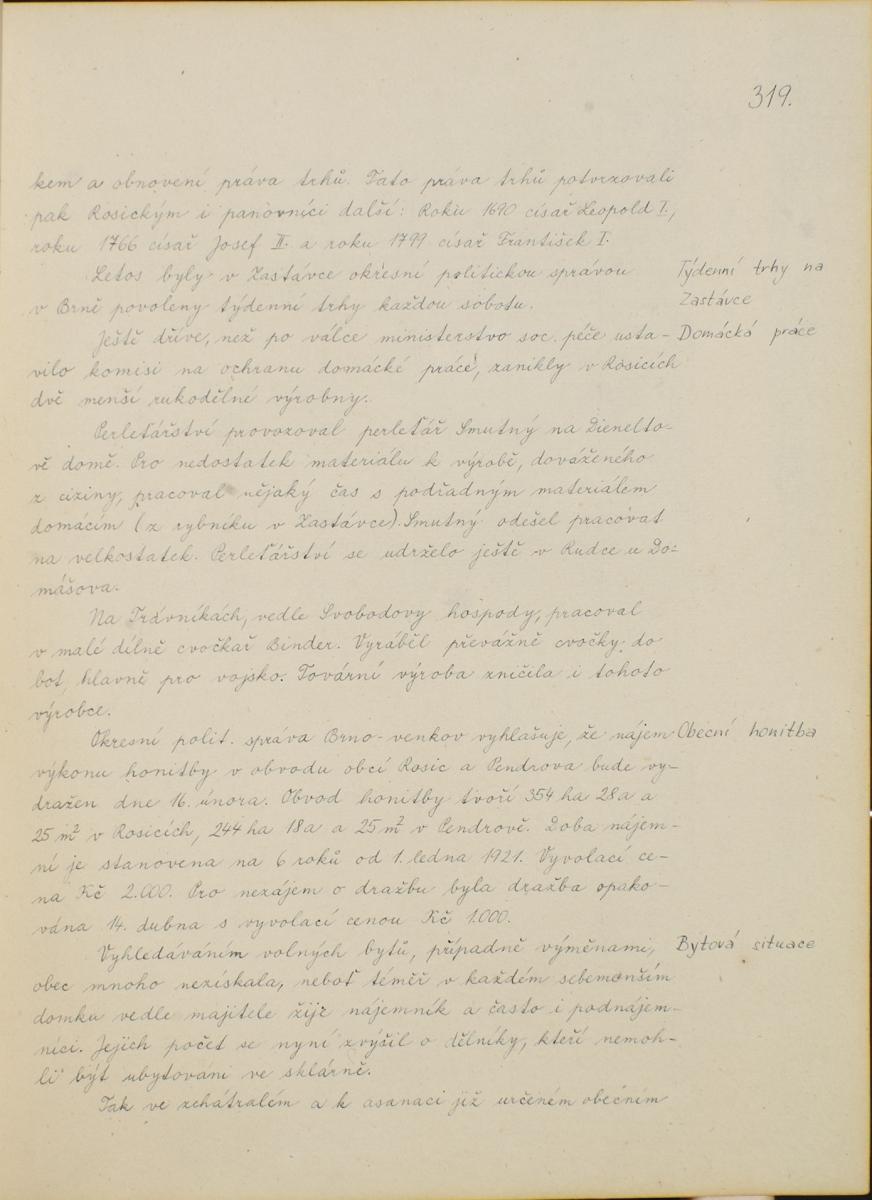 319.
kem a obnovení práva trhů. Tato práva trhů potvrzovali
pak Rosickým i panovníci další: Roku 1690 císař Leopold I.,
roku 1766 císař Josef II. a roku 1799 císař František I.
Letos byly v Zastávce okresní politickou správou
Týdenní trhy na
v Brně povoleny týdenní trhy každou sobotu.
Zastávce
Ještě dříve, než po válce ministerstvo soc. péče usta-
Domácká práce
vilo komisi na ochranu domácké práce, zanikly v Rosicích
dvě menší rukodělné výrobny.
Perleťářství provozoval perleťář Smutný na Dienelto-
vě domě. Pro nedostatek materiálu k výrobě, dováženého
z ciziny, pracoval nějaký čas s podřadným materiálem
domácím (z rybníku v Zastávce). Smutný odešel pracovat
na velkostatek. Perleťářství se udrželo ještě v Rudce u Do-
mášova.
Na Trávníkách, vedle Svobodovy hospody, pracoval
v malé dílně cvočkař Binder. Vyráběl převážně cvočky do
bot, hlavně pro vojsko. Tovární výroba zničila i tohoto
výrobce.
Okresní polit. správa Brno-venkov vyhlašuje, že nájem
Obecní honitba
výkonu honitby v obvodu obcí Rosic a Pendrova bude vy-
dražen dne 16. února. Obvod honitby tvoří 354 ha 28 a a
25 m² v Rosicích, 244 ha 18 a a 25 m² v Pendrově. Doba nájem-
ní je stanovena na 6 roků od 1. ledna 1921. Vyvolací ce-
na Kč 2.000. Pro nezájem o dražbu byla dražba opako-
vána 14. dubna s vyvolací cenou Kč 1.000.
Vyhledáváním volných bytů, případně výměnami,
Bytová situace
obec mnoho nezískala, neboť téměř v každém sebemenším
domku vedle majitele žije nájemník a často i podnájem-
níci. Jejich počet se nyní zvýšil o dělníky, kteří nemoh-
li být ubytováni ve sklárně.
Tak ve zchátralém a k asanaci již určeném obecním